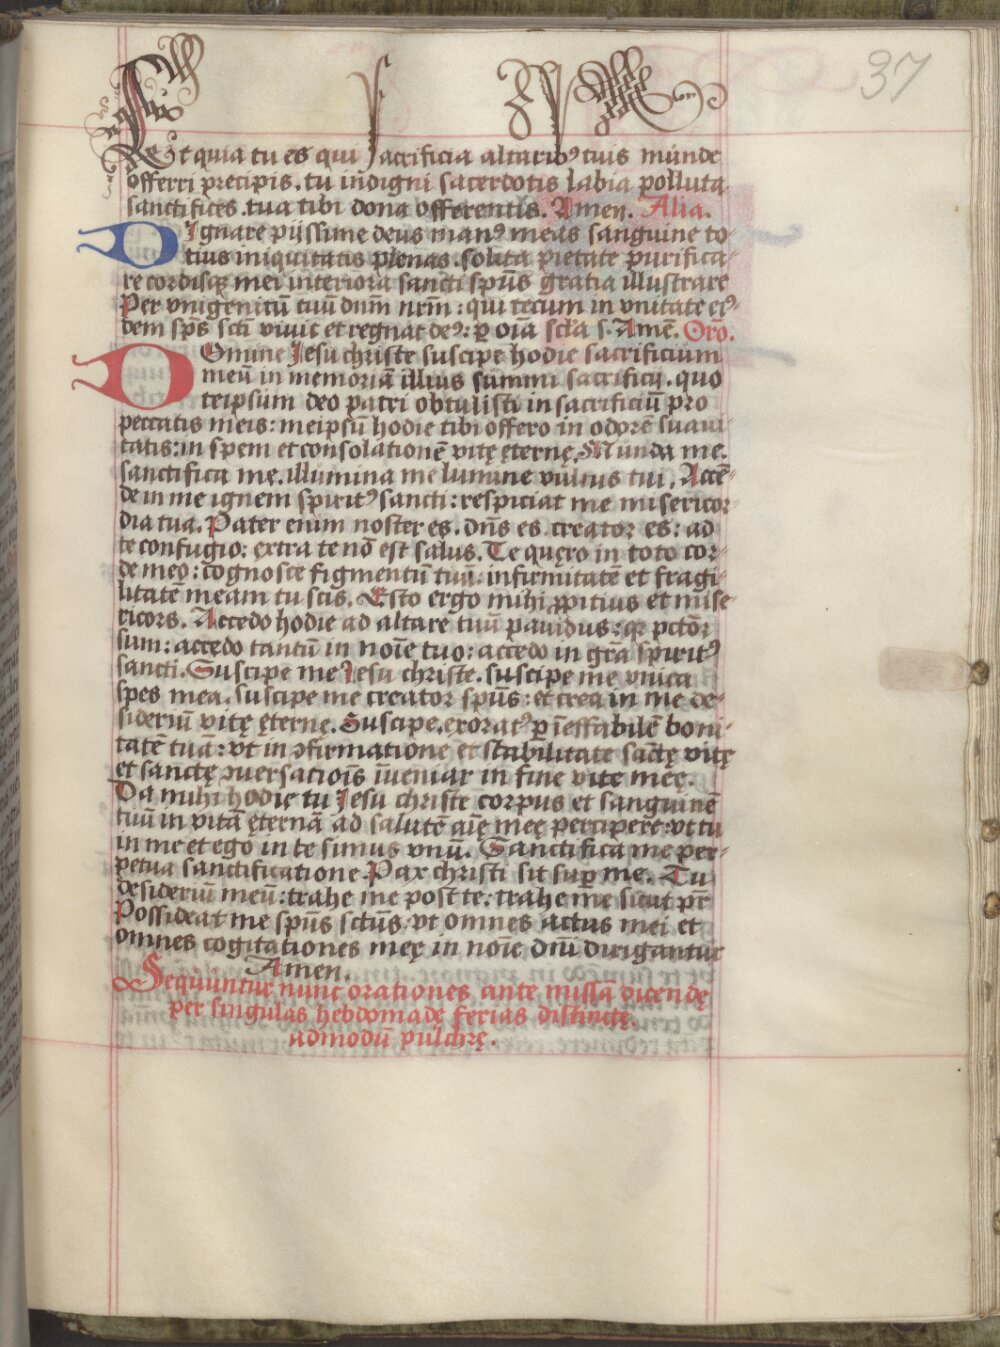 37
Et quia tu es qui sacrificia altaribꝰ tuis munde
offerri precipis. tu indigni sacerdotis labia polluta
sanctifices. tua tibi dona offerentis. Amen. Alia.
DIgnare piissime deus manꝰ meas sanguine to-
tius iniquitatis plenas. solita pietate purifica-
re cordisqꝫ mei interiora sancti spūs gratia illustrare
Per vnigenitū tuū dnm nrm: qui tecum in vnitate eiꝰ-
dem spс scti viuit et regnat deꝰ: ꝑ oīa scla s. Amē. Orō.
DOmine Jesu christe suscipe hodie sacrificium
meū in memoriā illius summi sacrificij. quo
teipsum deo patri obtulisti in sacrificiū pro
peccatis meis: meipsū hodie tibi offero in odorē suaui-
tatis: in spem et consolationē vitę eternę. Munda me.
sanctifica me. illumina me lumine vultus tui. Accē-
de in me ignem spiritꝰ sancti: respiciat me misericor-
dia tua. Pater enim noster es. dn̄s es. creator es: ad
te confugio: extra te nō est salus. Te quęro in toto cor-
de meo: cognosce figmentū tuū: infirmitatē et fragi-
litatē meam tu scis. Esto ergo mihi ꝓpitius et mise-
ricors. Accedo hodie ad altare tuū pauidus: qꝛ pctōr
sum: accedo tantū in noīe tuo: accedo in grā spiritꝰ
sancti. Suscipe me Jesu christe. suscipe me vnica
spes mea. suscipe me creator spūs: et crea in me de-
sideriū vitę ęterne. Suscipe. exoratꝰ ꝑ īeffabilē boni-
tatē tuā: vt in ꝯfirmatione et stabilitate sāctę vitę
et sanctę ꝯuersatiōis īueniar in fine vite meę.
Da mihi hodie tu Jesu christe corpus et sanguinē
tuū in vitā ęternā ad salutē aīę meę percipere: vt tu
in me et ego in te simus vnū. Sanctifica me per-
petua sanctificatione. Pax christi sit suꝑ me. Tu
desideriū meū: trahe me post te. trahe me sicut pr̄
Possideat me spūs sctūs: vt omnes actus mei et
omnes cogitationes meę in noīe dnī dirigantur
Amen.
Sequuntur nunc orationes ante missā dicendę
per singulas hebdomade ferias distinctę.
admodū pulchrę.